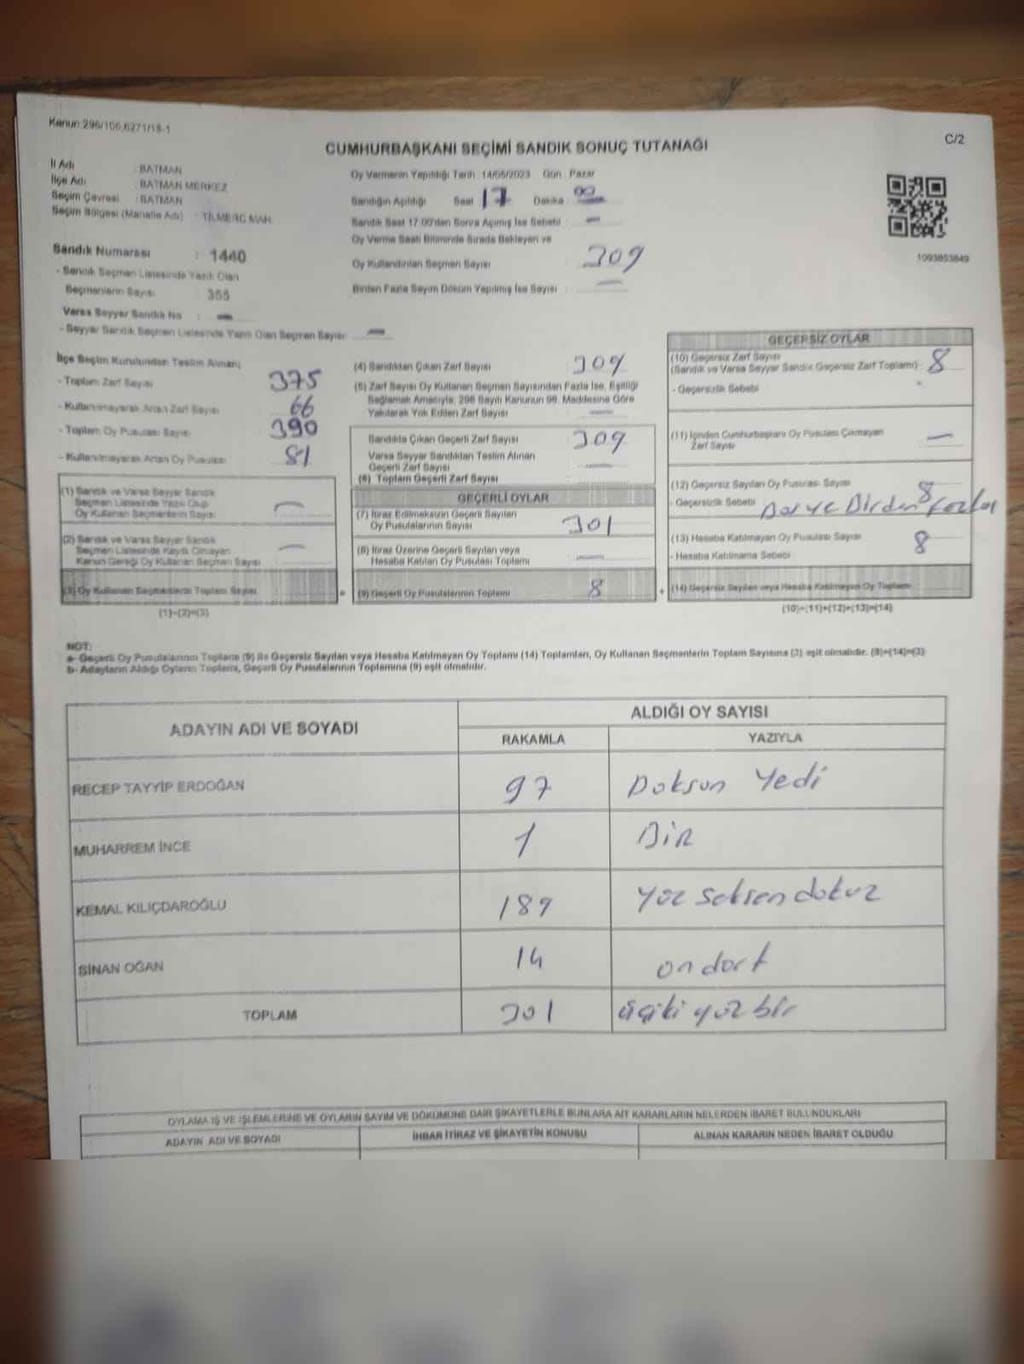 Kanun:296/106,6271/18-1
C/2
CUMHURBAŞKANI SEÇİMİ SANDIK SONUÇ TUTANAĞI
İl Adı : BATMAN
İlçe Adı : BATMAN MERKEZ
Seçim Çevresi : BATMAN
Seçim Bölgesi (Mahalle Adı) : TİLMERÇ MAH.
Oy Vermenin Yapıldığı Tarih : 14/05/2023 Gün : Pazar
Sandığın Açıldığı Saat 17 Dakika 00
Sandık Saat 17:00'den Sonra Açılmış İse Sebebi : —
Oy Verme Saati Bitiminde Sırada Bekleyen ve
Oy Kullandırılan Seçmen Sayısı : 309
Birden Fazla Sayım Döküm Yapılmış İse Sayısı : —
1093853849
Sandık Numarası : 1440
- Sandık Seçmen Listesinde Yazılı Olan
Seçmenlerin Sayısı : 355
Varsa Seyyar Sandık No : —
- Seyyar Sandık Seçmen Listesinde Yazılı Olan Seçmen Sayısı : —
İlçe Seçim Kurulundan Teslim Alınan;
- Toplam Zarf Sayısı 375
- Kullanılmayarak Artan Zarf Sayısı 66
- Toplam Oy Pusulası Sayısı 390
- Kullanılmayarak Artan Oy Pusulası 81
(1) Sandık ve Varsa Seyyar Sandık
Seçmen Listesinde Yazılı Olup
Oy Kullanan Seçmenlerin Sayısı —
(2) Sandık ve Varsa Seyyar Sandık
Seçmen Listesinde Kayıtlı Olmayan
Kanun Gereği Oy Kullanan Seçmen Sayısı —
(3) Oy Kullanan Seçmenlerin Toplam Sayısı
(1)+(2)=(3)
(4) Sandıktan Çıkan Zarf Sayısı 309
(5) Zarf Sayısı Oy Kullanan Seçmen Sayısından Fazla İse, Eşitliği
Sağlamak Amacıyla; 298 Sayılı Kanunun 98. Maddesine Göre
Yakılarak Yok Edilen Zarf Sayısı —
Sandıkta Çıkan Geçerli Zarf Sayısı 309
Varsa Seyyar Sandıktan Teslim Alınan
Geçerli Zarf Sayısı —
(6) Toplam Geçerli Zarf Sayısı
GEÇERLİ OYLAR
(7) İtiraz Edilmeksizin Geçerli Sayılan
Oy Pusulalarının Sayısı 301
(8) İtiraz Üzerine Geçerli Sayılan veya
Hesaba Katılan Oy Pusulası Toplamı —
(9) Geçerli Oy Pusulalarının Toplamı 8
GEÇERSİZ OYLAR
(10) Geçersiz Zarf Sayısı
(Sandık ve Varsa Seyyar Sandık Geçersiz Zarf Toplamı) 8
- Geçersizlik Sebebi
(11) İçinden Cumhurbaşkanı Oy Pusulası Çıkmayan
Zarf Sayısı —
(12) Geçersiz Sayılan Oy Pusulası Sayısı 8
- Geçersizlik Sebebi Birden fazla
(13) Hesaba Katılmayan Oy Pusulası Sayısı 8
- Hesaba Katılmama Sebebi
(14) Geçersiz Sayılan veya Hesaba Katılmayan Oy Toplamı
(10)+(11)+(12)+(13)=(14)
NOT:
a- Geçerli Oy Pusulalarının Toplamı (9) ile Geçersiz Sayılan veya Hesaba Katılmayan Oy Toplamı (14) Toplamları, Oy Kullanan Seçmenlerin Toplam Sayısına (3) eşit olmalıdır. (9)+(14)=(3)
b- Adayların Aldığı Oyların Toplamı, Geçerli Oy Pusulalarının Toplamına (9) eşit olmalıdır.
ADAYIN ADI VE SOYADI
ALDIĞI OY SAYISI
RAKAMLA YAZIYLA
RECEP TAYYİP ERDOĞAN 97 Doksan Yedi
MUHARREM İNCE 1 Bir
KEMAL KILIÇDAROĞLU 189 Yüz seksen dokuz
SİNAN OĞAN 14 on dört
TOPLAM 301 yüz bir
OYLAMA İŞ VE İŞLEMLERİNE VE OYLARIN SAYIM VE DÖKÜMÜNE DAİR ŞİKAYETLERLE BUNLARA AİT KARARLARIN NELERDEN İBARET BULUNDUKLARI
ADAYIN ADI VE SOYADI İHBAR İTİRAZ VE ŞİKAYETİN KONUSU ALINAN KARARIN NEDEN İBARET OLDUĞU